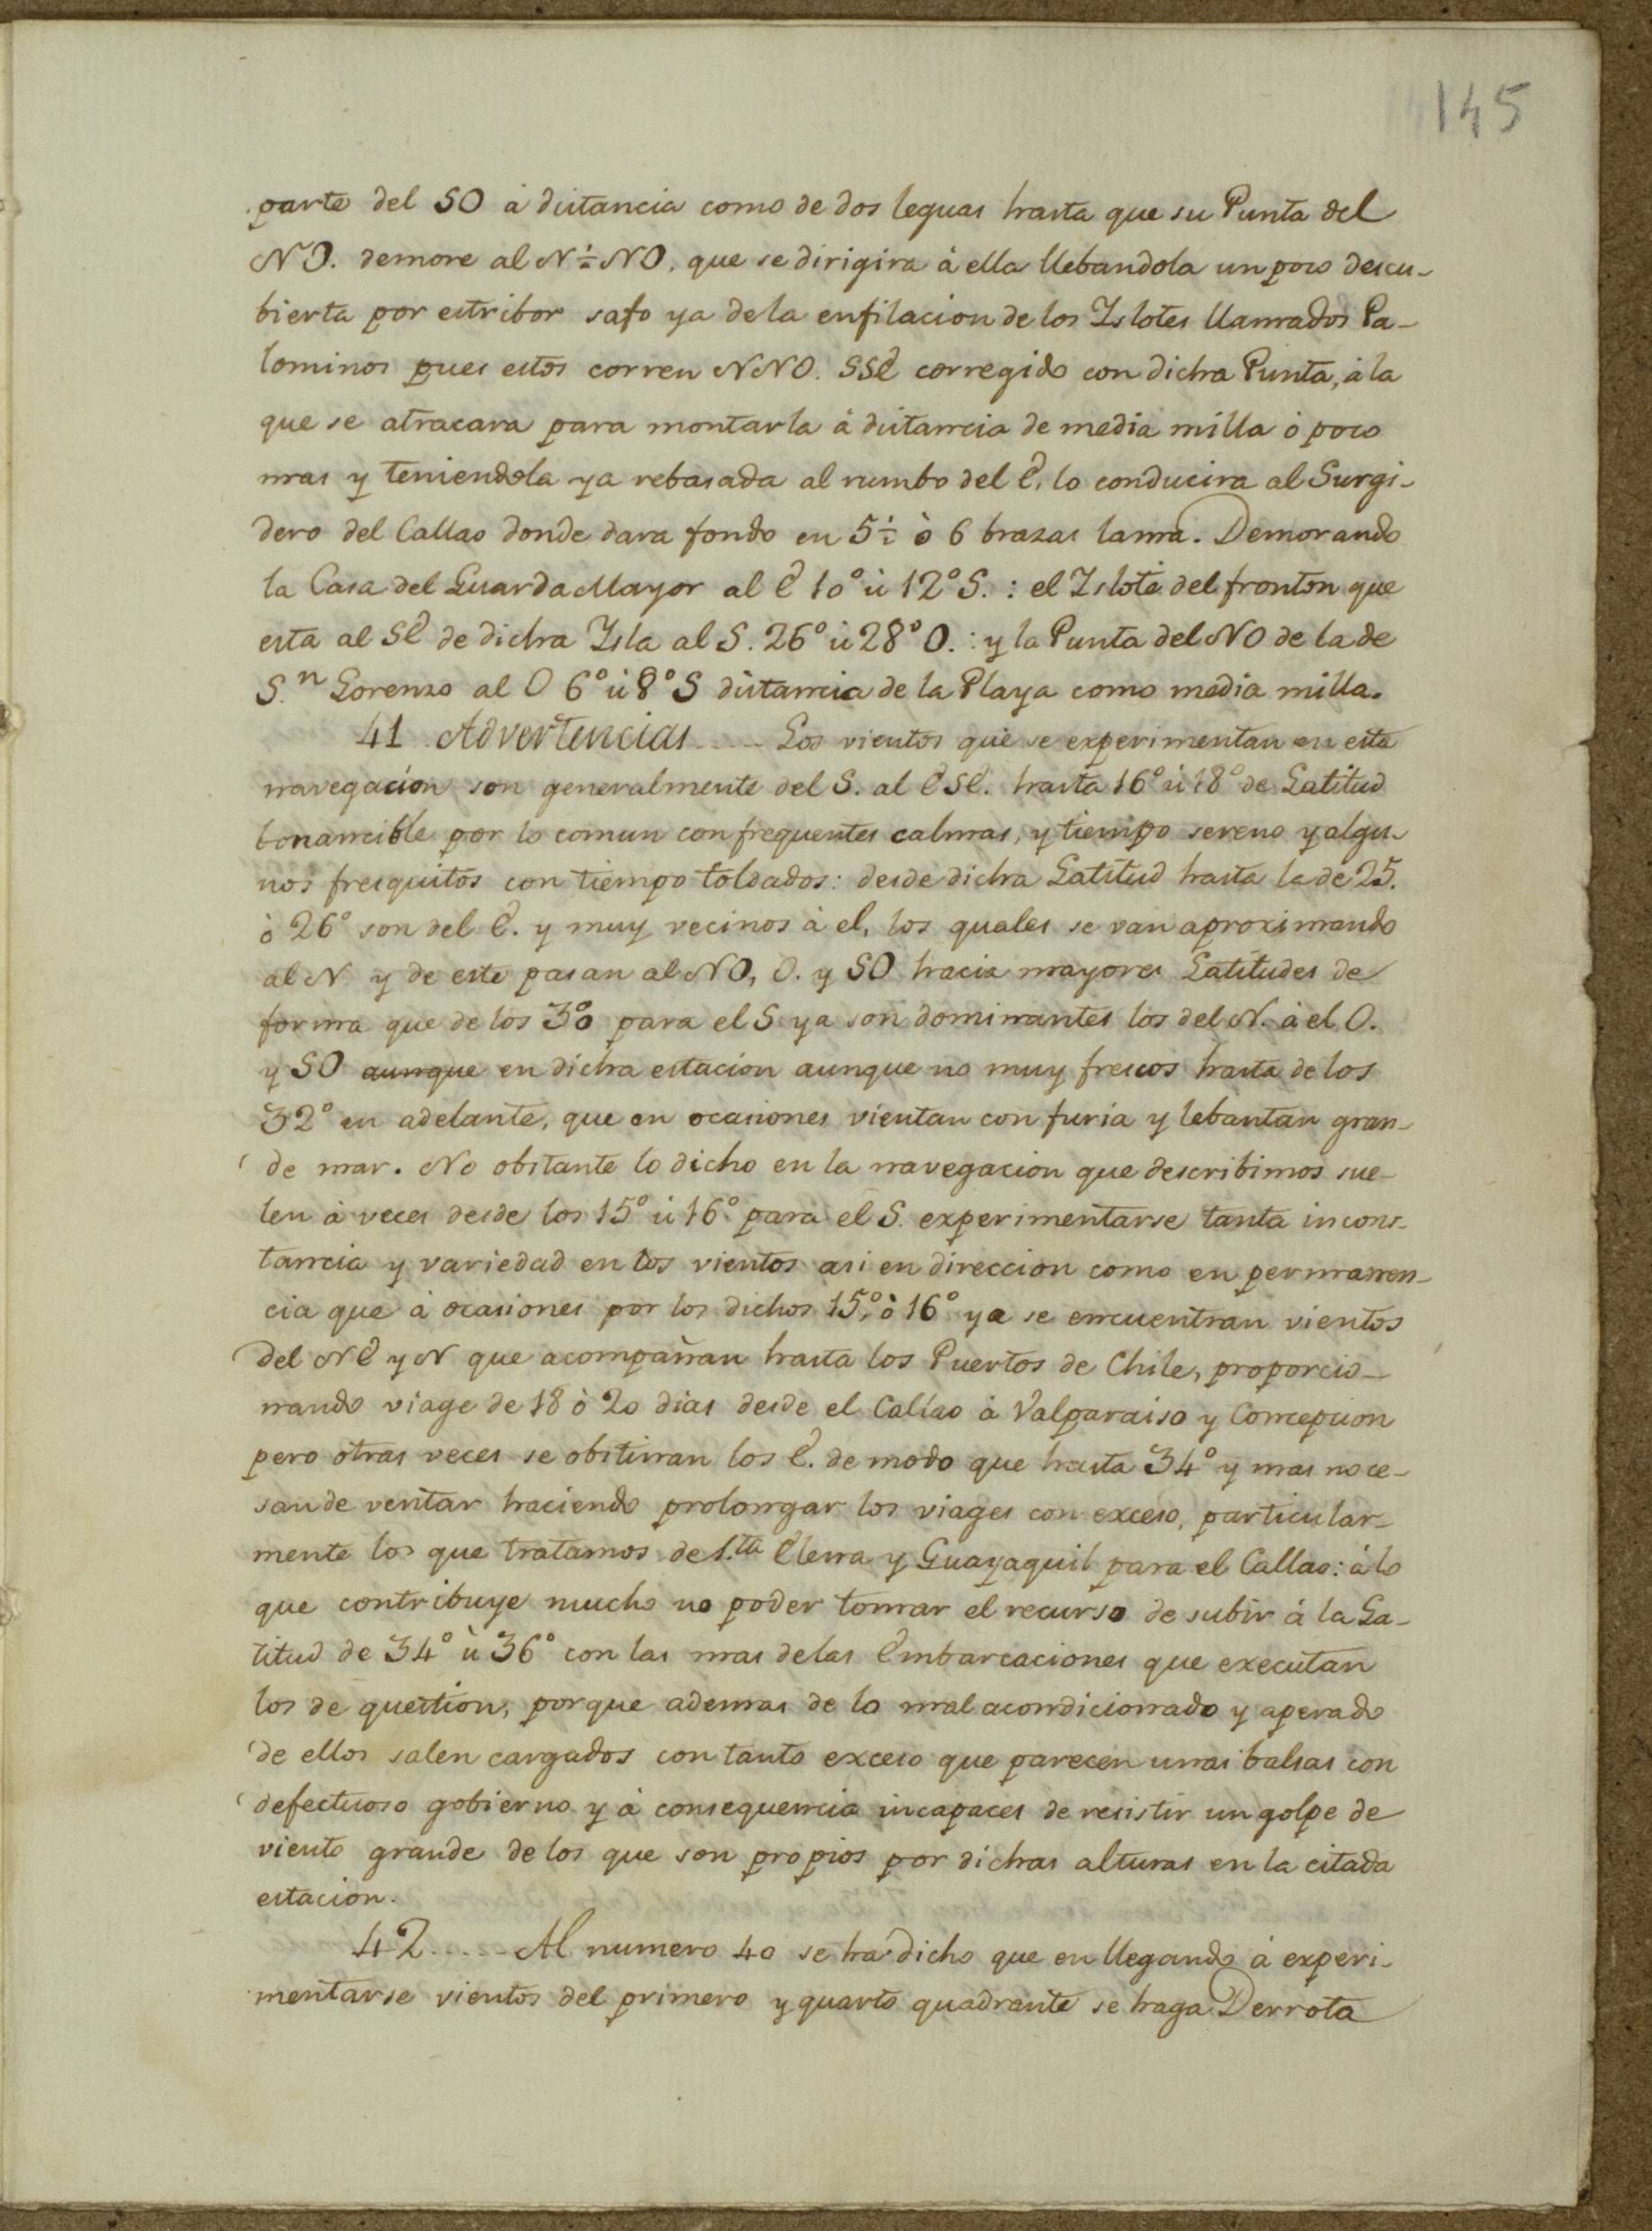 145
parte del SO à distancia como de dos leguas hasta que su Punta del
NO. demore al N¼NO, que se dirigira à ella llebandola un poco descu-
bierta por estribor safo ya dela enfilacion de los Yslotes llamados Pa-
lominos pues estos corren NNO. SSE corregido con dicha Punta, à la
que se atracara para montarla à distancia de media milla ò poco
mas y teniendola ya rebasada al rumbo del E, lo conducira al Surgi-
dero del Callao donde dara fondo en 5½ ò 6 brazas lama. Demorando
la Casa del Guarda Mayor al E 10° ù 12° S. : el Yslote del fronton que
esta al SE de dicha Ysla al S. 26° ù 28° O. : y la Punta del NO de la de
S.n Lorenzo al O 6° ù 8° S distancia de la Playa como media milla.
41 Advertencias..... Los vientos que se experimentan en esta
navegacion son generalmente del S. al ESE. hasta 16° ù 18° de Latitud
bonancible por lo comun con frequentes calmas, y tiempo sereno y algu-
nos fresquitos con tiempo toldados: desde dicha Latitud hasta la de 25.
ò 26° son del E. y muy vecinos à el, los quales se van aproximando
al N. y de este pasan al NO, O. y SO hacia mayores Latitudes de
forma que de los 30 para el S ya son dominantes los del N. à el O.
y SO aunque en dicha estacion aunque no muy frescos hasta de los
32° en adelante, que en ocasiones vientan con furia y lebantan gran-
de mar. No obstante lo dicho en la navegacion que describimos sue-
len à veces desde los 15° ù 16° para el S. experimentarse tanta incons-
tancia y variedad en los vientos asi en direccion como en permanen-
cia que à ocasiones por los dichos 15°, ò 16° ya se encuentran vientos
del NE y N que acompañan hasta los Puertos de Chile, proporcio-
nando viage de 18 ò 20 dias desde el Callao à Valparaiso y Concepcion
pero otras veces se obstinan los E. de modo que hasta 34° y mas no ce-
san de ventar haciendo prolongar los viages con exceso, particular-
mente los que tratamos de S.ta Elena y Guayaquil para el Callao: à lo
que contribuye mucho no poder tomar el recurso de subir à la La-
titud de 34° ù 36° con las mas delas Embarcaciones que executan
los de question, porque ademas de lo mal acondicionado y aperado
de ellos salen cargados con tanto exceso que parecen unas balsas con
defectuoso gobierno y à consequencia incapaces de resistir un golpe de
viento grande de los que son propios por dichas alturas en la citada
estacion.
42..... Al numero 40 se ha dicho que en llegando à experi-
mentarse vientos del primero y quarto quadrante se haga Derrota